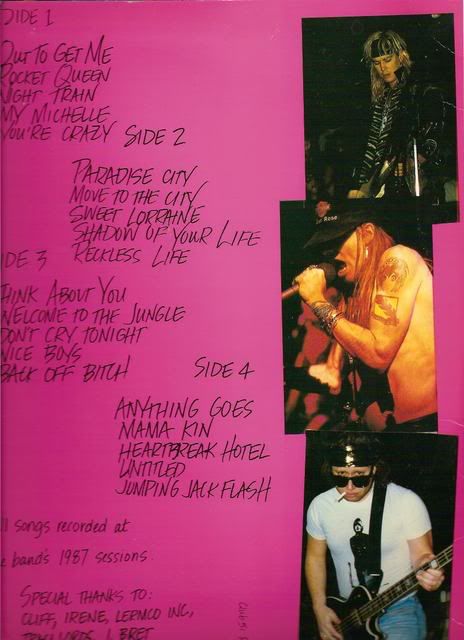 SIDE 1
OUT TO GET ME
ROCKET QUEEN
NIGHT TRAIN
MY MICHELLE
YOU'RE CRAZY
SIDE 2
PARADISE CITY
MOVE TO THE CITY
SWEET LORRAINE
SHADOW OF YOUR LIFE
RECKLESS LIFE
IDE 3
THINK ABOUT YOU
WELCOME TO THE JUNGLE
DON'T CRY TONIGHT
NICE BOYS
BACK OFF BITCH
SIDE 4
ANYTHING GOES
MAMA KIN
HEARTBREAK HOTEL
UNTITLED
JUMPING JACK FLASH
ll songs recorded at
e band's 1987 sessions.
SPECIAL THANKS TO:
CLIFF, IRENE, LERMCO INC,
LORDS, L. BRET
Rose